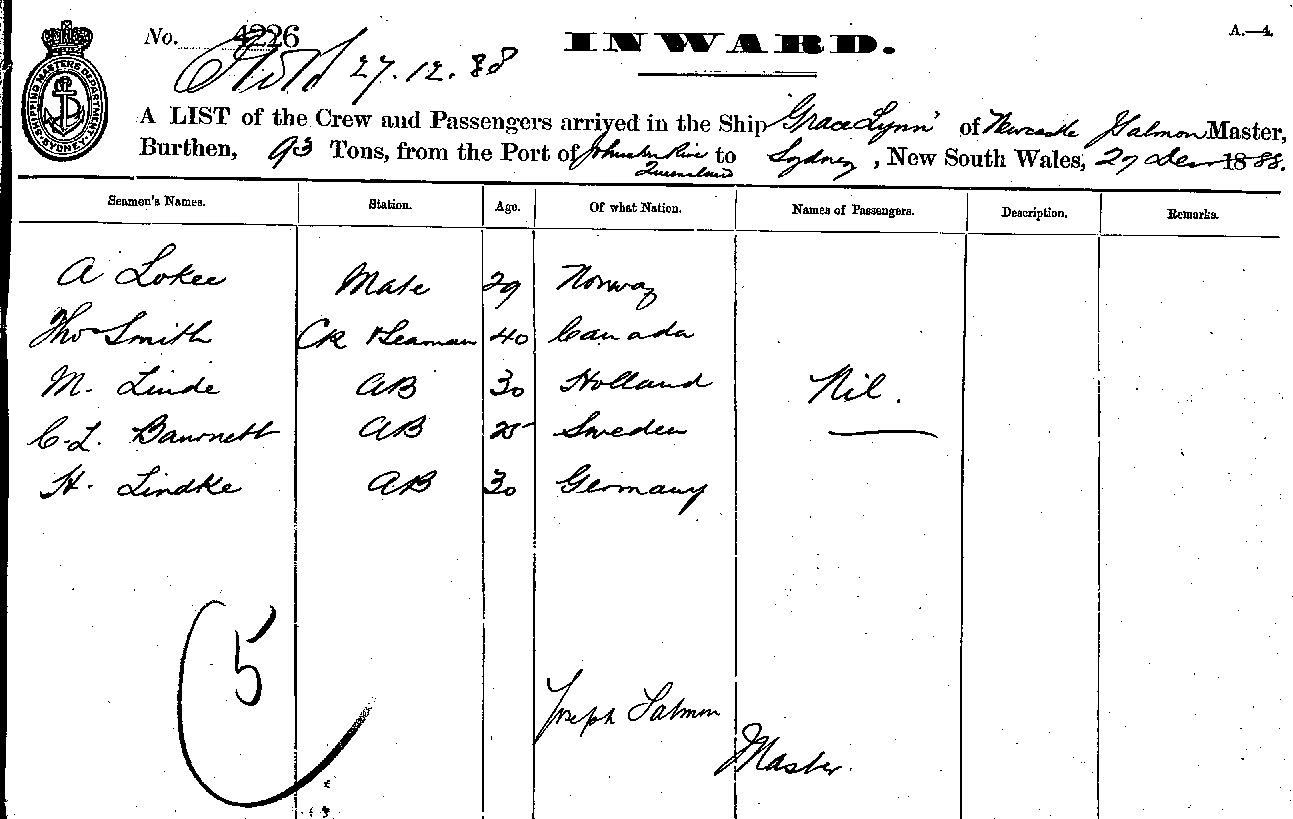 No. 4226
INWARD.
A.—4.
SHIPPING MASTERS DEPARTMENT SYDNEY
27.12.88
A LIST of the Crew and Passengers arrived in the Ship "Grace Lynn" of Newcastle Salmon Master,
Burthen, 93 Tons, from the Port of Johnston River Queensland to Sydney, New South Wales, 27 Dec 1888.
Seamen's Names. Station. Age. Of what Nation. Names of Passengers. Description. Remarks.
A Lokee Mate 29 Norway
Thos Smith Ck & Seaman 40 Canada
M. Linde AB 30 Holland Nil.
C. L. AB 25 Sweden
H. Lindke AB 30 Germany
5
Joseph Salmon
Master.